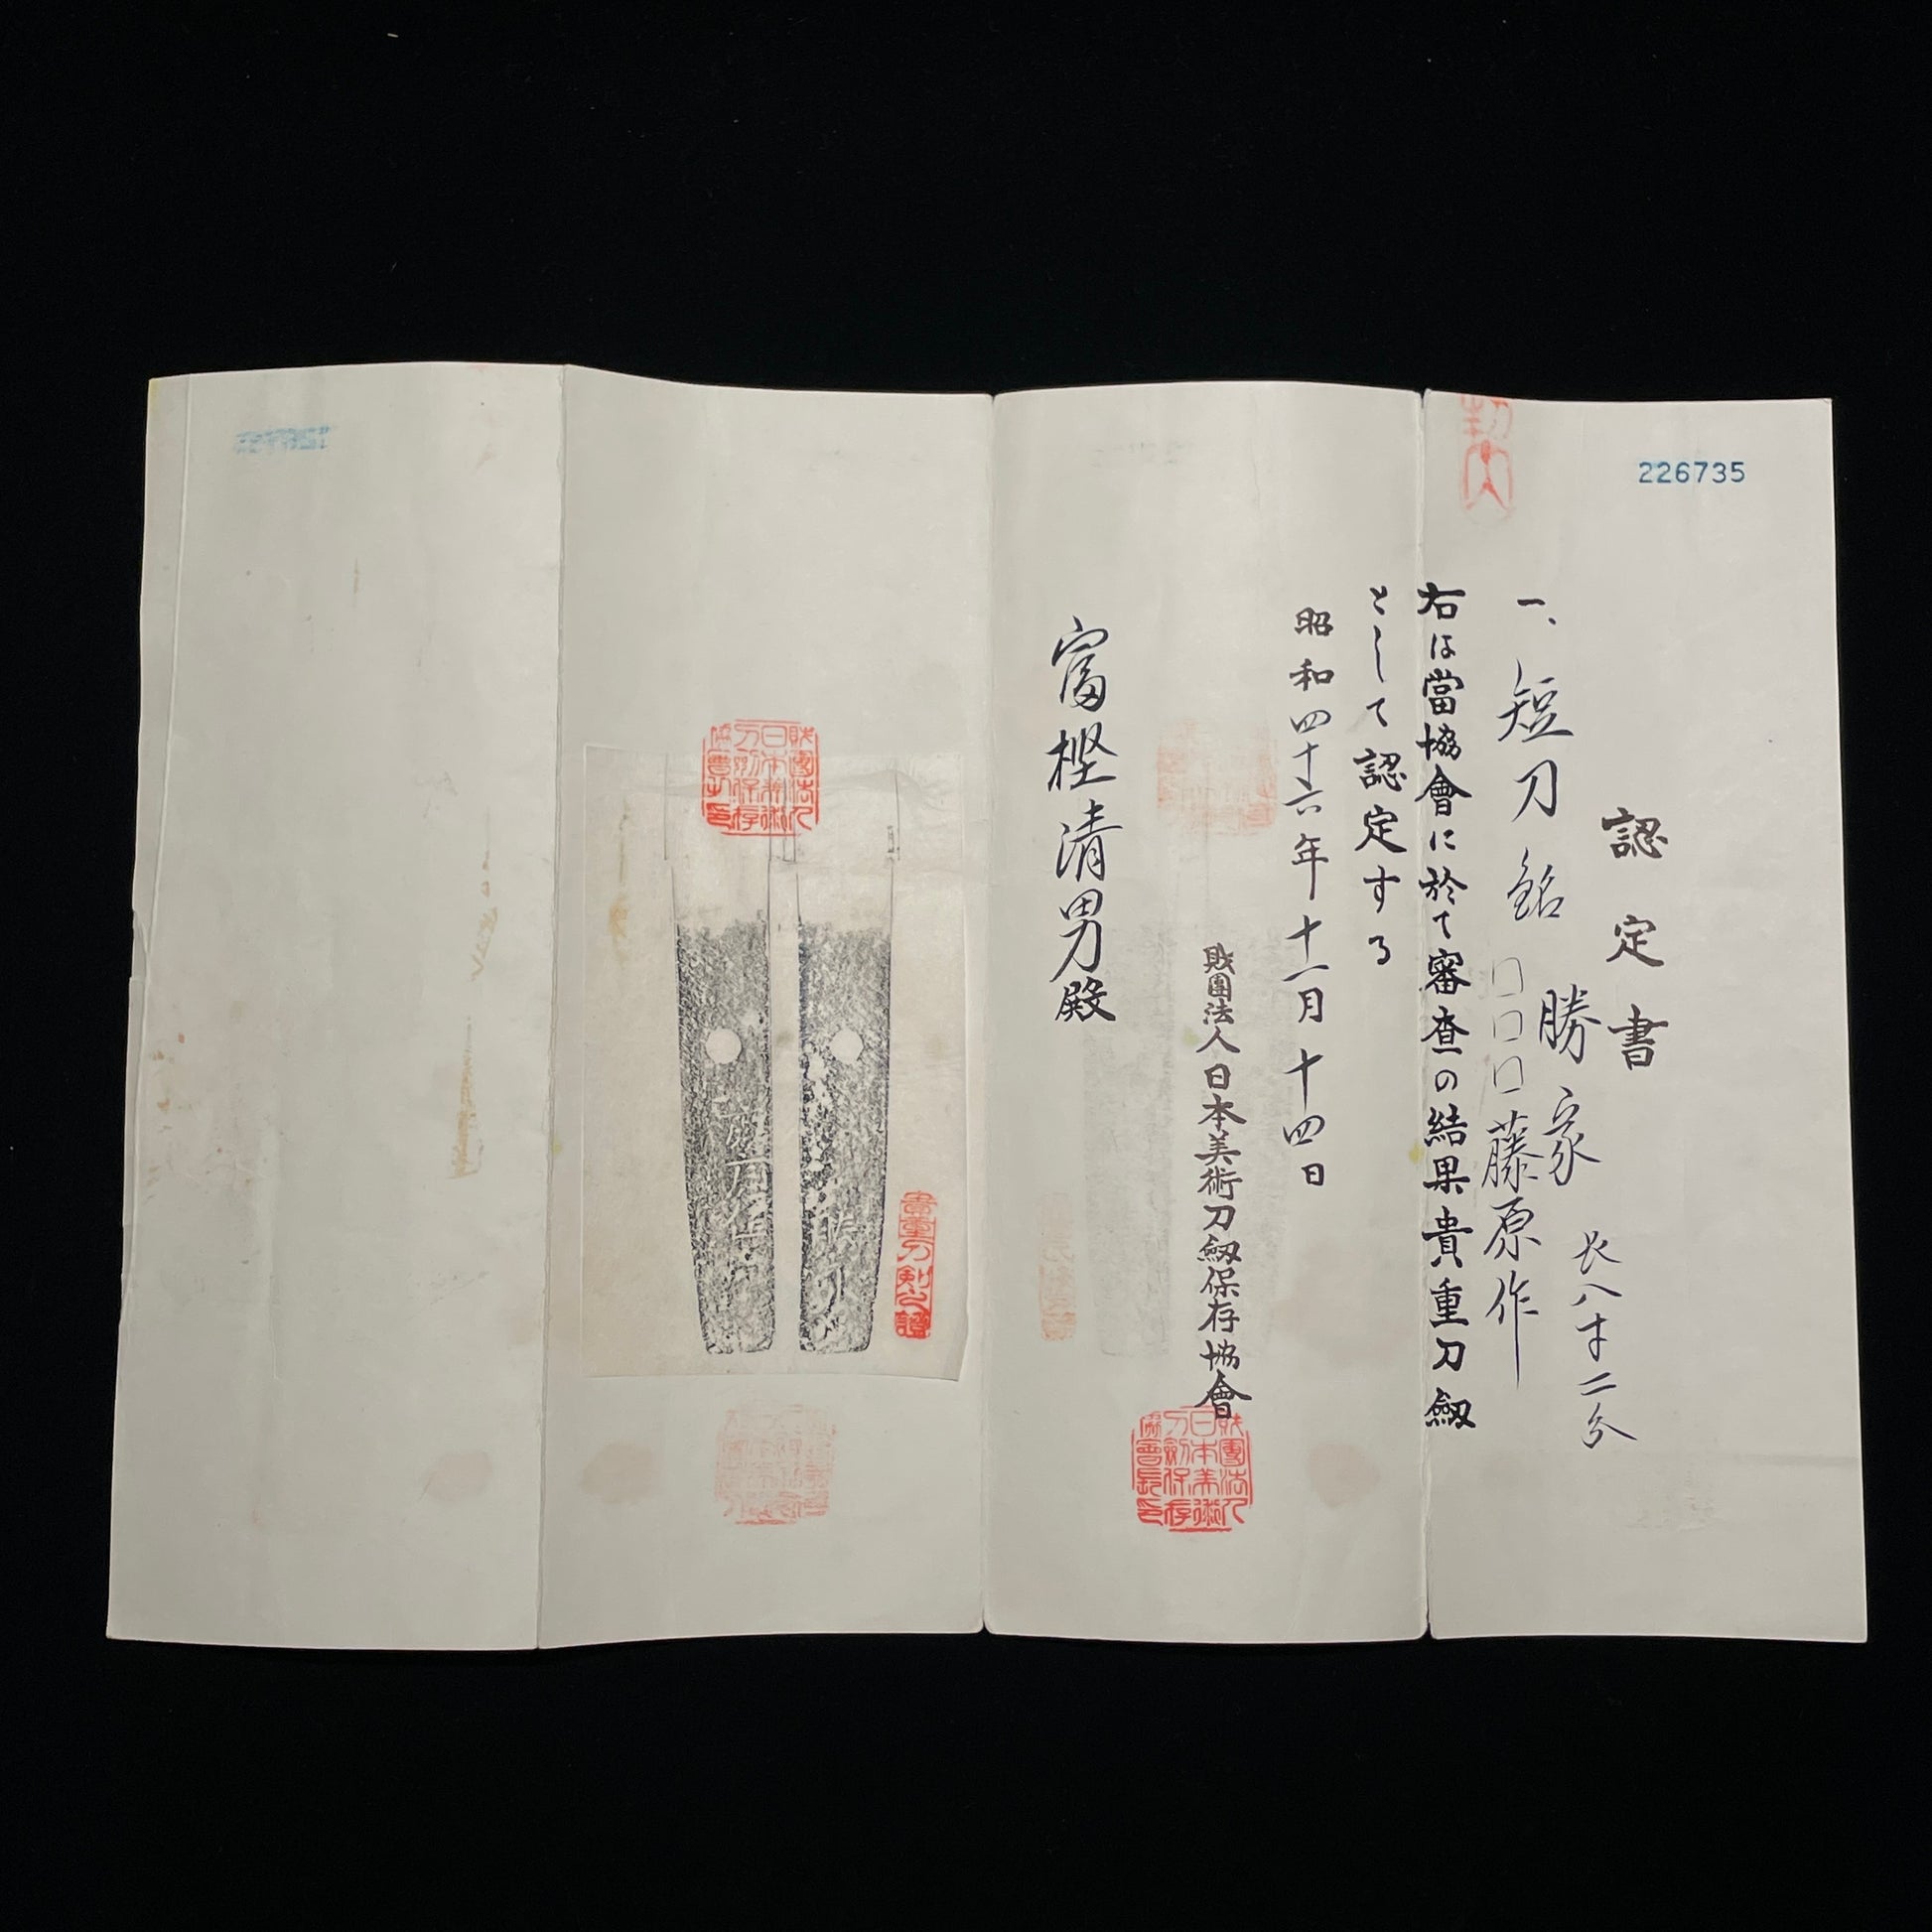 226735
認定書
一、短刀 銘 勝家
□□□藤原作
長八寸二分
右は當協會に於て審査の結果貴重刀劔
として認定する
昭和四十六年十一月十四日
財團法人日本美術刀劔保存協會
財團法人日本美術刀劔保存協會長印
富樫清男殿
貴重刀剣之證